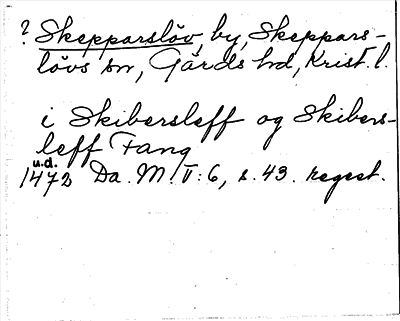 ? Skepparslöv, by, Skeppars-
lövs sn, Gärds hd, Krist. l.
i Skibersleff og Skibers-
leff Fang
u.d.
1472 Da. M. V: 6, s. 43. regest.